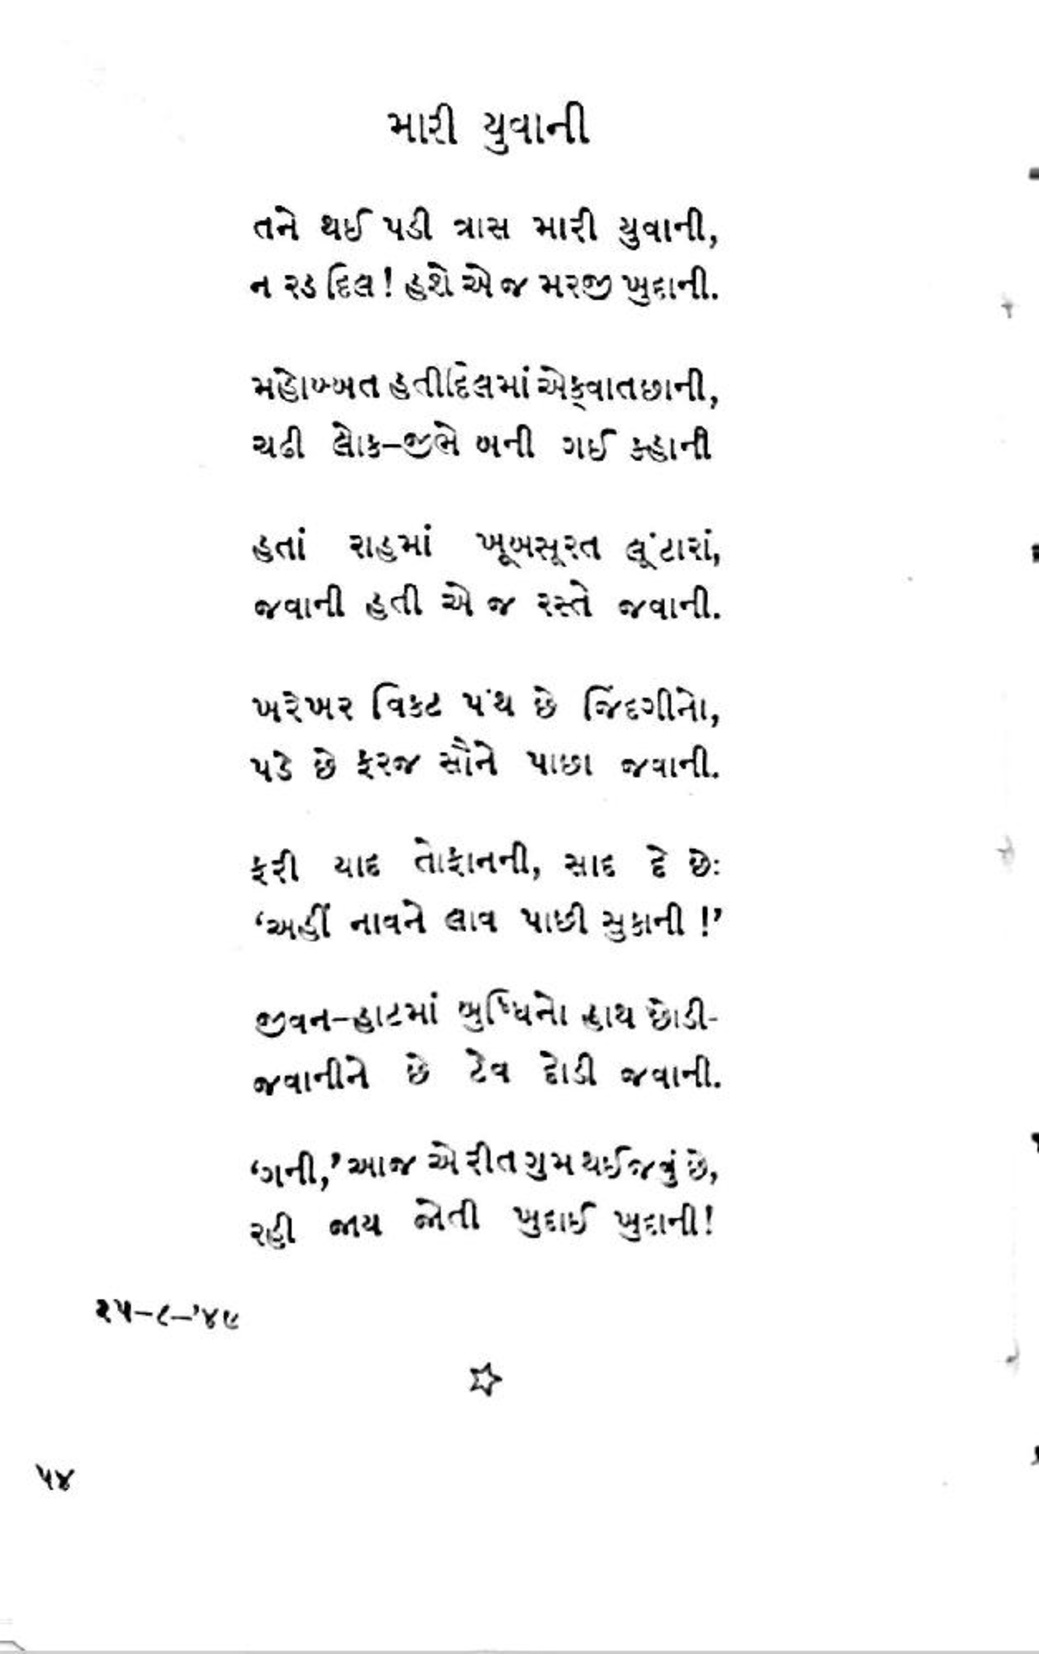 મારી યુવાની
તને થઈ પડી ત્રાસ મારી યુવાની,
ન રડ દિલ! હશે એ જ મરજી ખુદાની.
મહોબ્બત હતી દિલમાં એક વાત છાની,
ચઢી લોક-જીભે બની ગઈ કહાની
હતાં રાહમાં ખૂબસૂરત લૂંટારાં,
જવાની હતી એ જ રસ્તે જવાની.
ખરેખર વિકટ પંથ છે જિંદગીનો,
પડે છે ફરજ સૌને પાછા જવાની.
ફરી યાદ તોફાનની, સાદ દે છેઃ
‘અહીં નાવને લાવ પાછી સુકાની !’
જીવન-હાટમાં બુધ્ધિનો હાથ છોડી-
જવાનીને છે ટેવ દોડી જવાની.
‘ગની,’ આજ એ રીત ગુમ થઈ જવું છે,
રહી જાય જોતી ખુદાઈ ખુદાની!
૨૫-૮-’૪૯
૫૪